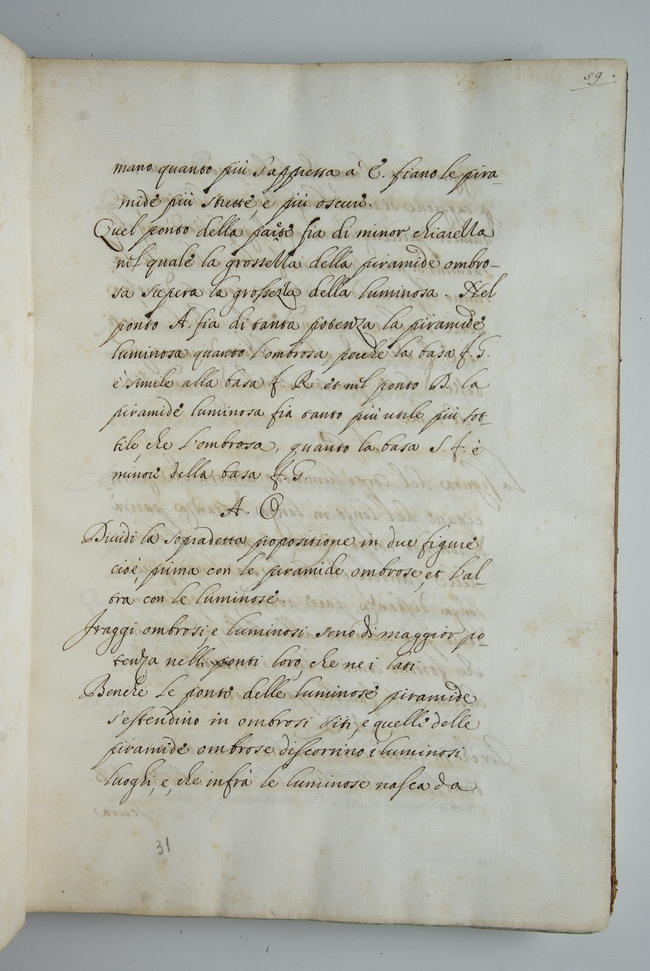 89.
mano quanto più s'appressa à E. fiano le pira-
mide più strette, e più oscure.
Quel ponto della parete fia di minor chiarezza
nel quale la grossezza della piramide ombro-
sa supera la grossezza della luminosa. Nel
ponto A. fia di tanta potenza la piramide
luminosa quanto l'ombrosa, perche la basa f. G.
è simile alla basa f. R. et nel ponto D. la
piramide luminosa fia tanto più utile più sot-
tile, che l'ombrosa, quanto la basa S. f. è
minore della basa f. G.
A.
Dividi la sopradetta propositione in due figure
cioè, prima con le piramide ombrose, et l'al-
tra con le luminose.
fraggi ombrosi, e luminosi sono di maggior po-
tenza nelli ponti loro, che ne i lati
Benche le ponte delle luminose piramide
s'estendino in ombrosi siti, e quelle delle
piramide ombrose discorrino i luminosi
luoghi, e, che infrà le luminose nasca da
31